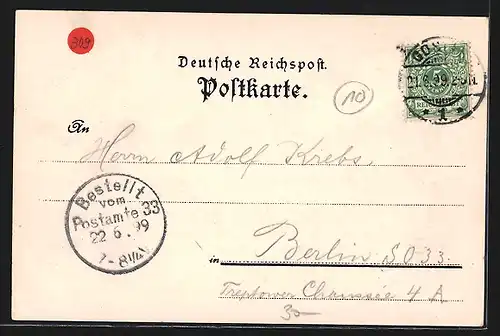 309
Deutsche Reichspost.
Postkarte.
10
21.6.99
1
An
Herrn Adolf Krebs
Bestellt
vom
Postamte 33
22 6.99
in Berlin SO 33.
Treptower Chaussée 4 A
30-